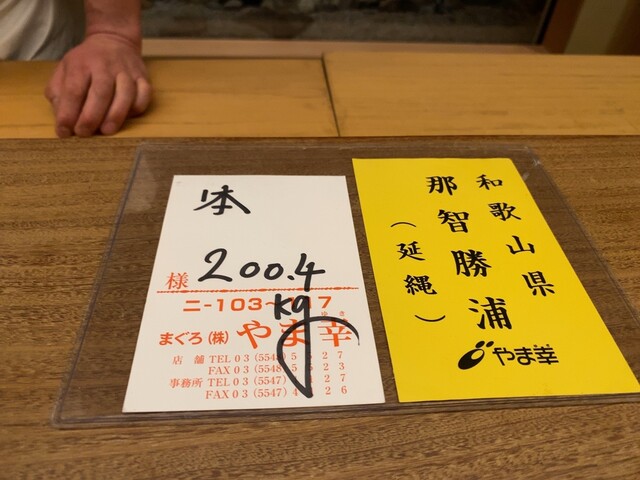 本
様
200.4
kg
ニ-103~117
まぐろ(株)やま幸
ゆき
店 舗 TEL 03 (5548)
FAX 03 (5548)
事務所 TEL 03 (5547)
FAX 03 (5547)
和歌山県
那智勝浦
(延縄)
やま幸